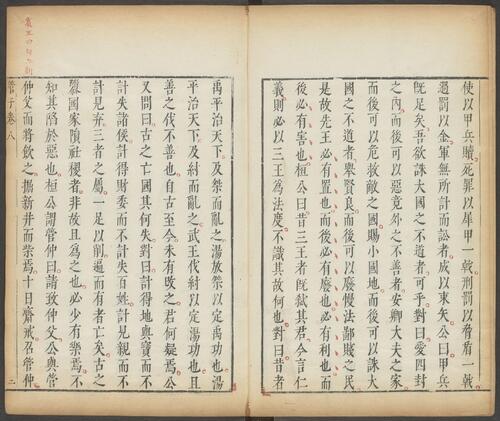 使以甲兵贖死罪以犀甲一戟刑罰以脅盾一戟
過罰以金軍無所計而訟者成以束矢公曰甲兵
既足矣吾欲誅大國之不道者可乎對曰愛四封
之內而後可以惡竟外之不善者安卿大夫之家
而後可以危救敵之國賜小國地而後可以誅大
國之不道者舉賢良而後可以廢慢法鄙賤之民
是故先王必有置也而後必有廢也必有利也而
後必有害也桓公曰昔三王者既弒其君今言仁
義則必以三王爲法度不識其故何也對曰昔者
禹平治天下及桀而亂之湯放桀以定禹功也湯
平治天下及紂而亂之武王伐紂以定湯功也且
善之伐不善也自古至今未有改之君何疑焉公
又問曰古之亡國其何失對曰計得地與寶而不
計失諸侯計得財委而不計失百姓計見親而不
計見弃三者之屬一足以削遍而有者亡矣古之
隳國家隕社稷者非故且爲之也必少有樂焉不
知其陷於惡也桓公謂管仲曰請致仲父公與管
仲父而將飲之掘新井而柴焉十日齋戒召管仲
管子卷八 二